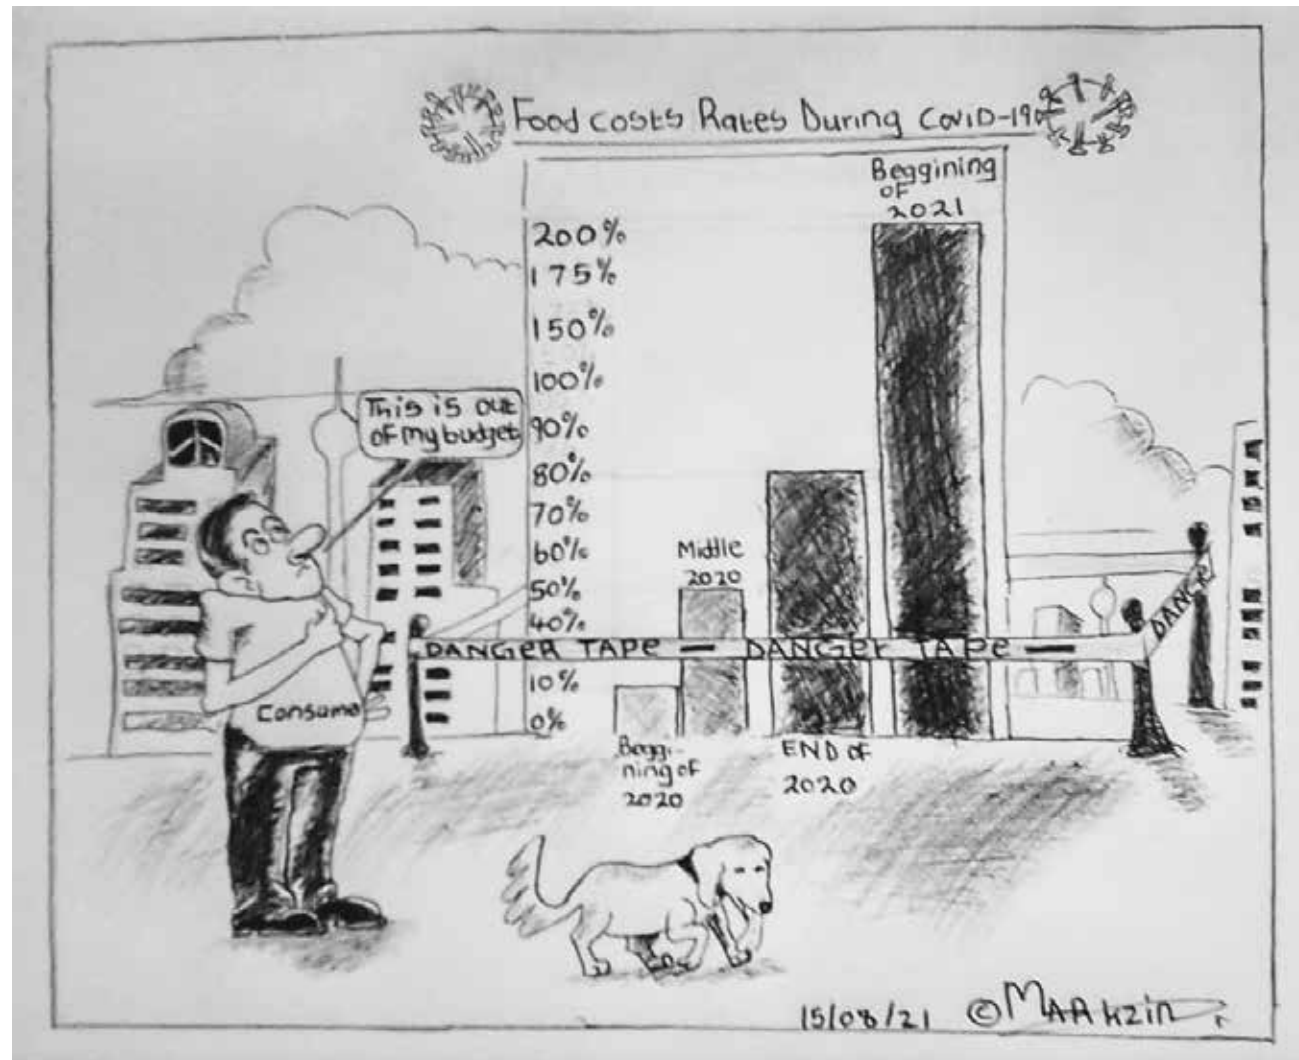 Food costs Rates During COVID-19
Beggining
OF
2021
200%
175%
150%
100%
90%
80%
70%
60%
50%
40%
10%
0%
This is out
of my budget
Middle
2020
DANGER TAPE — DANGER TAPE —
DANGER
Consume
Beggi-
ning of
2020
END OF
2020
15/08/21 ©